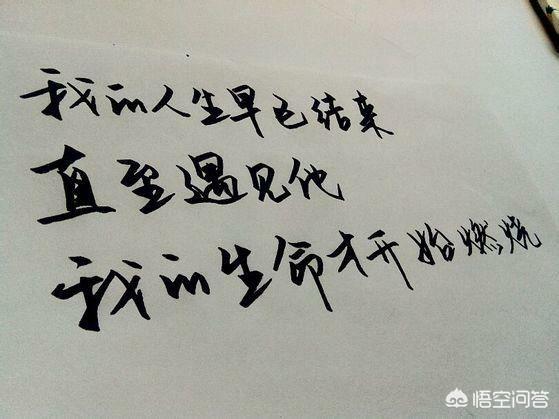 我的人生早已结束
直至遇见他
我的生命才开始燃烧
悟空问答